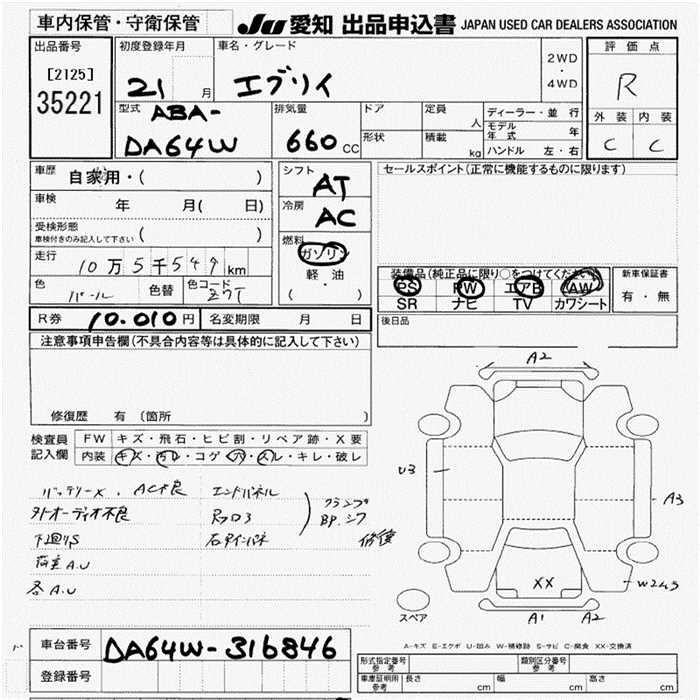 車内保管・守衛保管
JU 愛知 出品申込書 JAPAN USED CAR DEALERS ASSOCIATION
出品番号
[2125]
35221
初度登録年月
21 月
車名・グレード
エブリイ
2WD
・
4WD
評価点
R
外装 内装
C C
型式
ABA-
DA64W
排気量
660 CC
ドア
形状
定員 人
積載 kg
ディーラー・並行
モデル年式 年
ハンドル 左・右
車歴 自家用・( )
車検 年 月( 日)
受検形態
車検付きのみ記入して下さい ( )
走行 10万5千549km
色 パール 色替 色コード Z7T
シフト AT
冷房 AC
燃料
ガソリン
軽・油
( ・ )
セールスポイント(正常に機能するものに限ります)
装備品(純正品に限り○をつけてください)
PS PW エアB AW
SR ナビ TV カワシート
新車保証書
有・無
R券 10.010円 名変期限 月 日
後日品
注意事項申告欄(不具合内容等は具体的に記入して下さい)
修復歴 有 (箇所 )
検査員
記入欄
FW キズ・飛石・ヒビ割・リペア跡・X要
内装 キズ・汚レ・コゲ・穴・スレ・キレ・破レ
バッテリーX, AC不良 エンドパネル
外オーディオ不良 Rフロ3 クランプ
BP.シフ
下廻りS 右タイパネ 修復
荷室A.U
各A.U
A2
U3
A3
XX
W2ムラ
A1 A2
スペア
A-キズ E-エクボ U-凹み W-補修跡 S-サビ C-腐食 XX-交換済
車台番号 DA64W-316846
登録番号
形式指定番号
参考
類別区分番号
参考
車庫証明用
参考
長さ cm 幅 cm 高さ cm